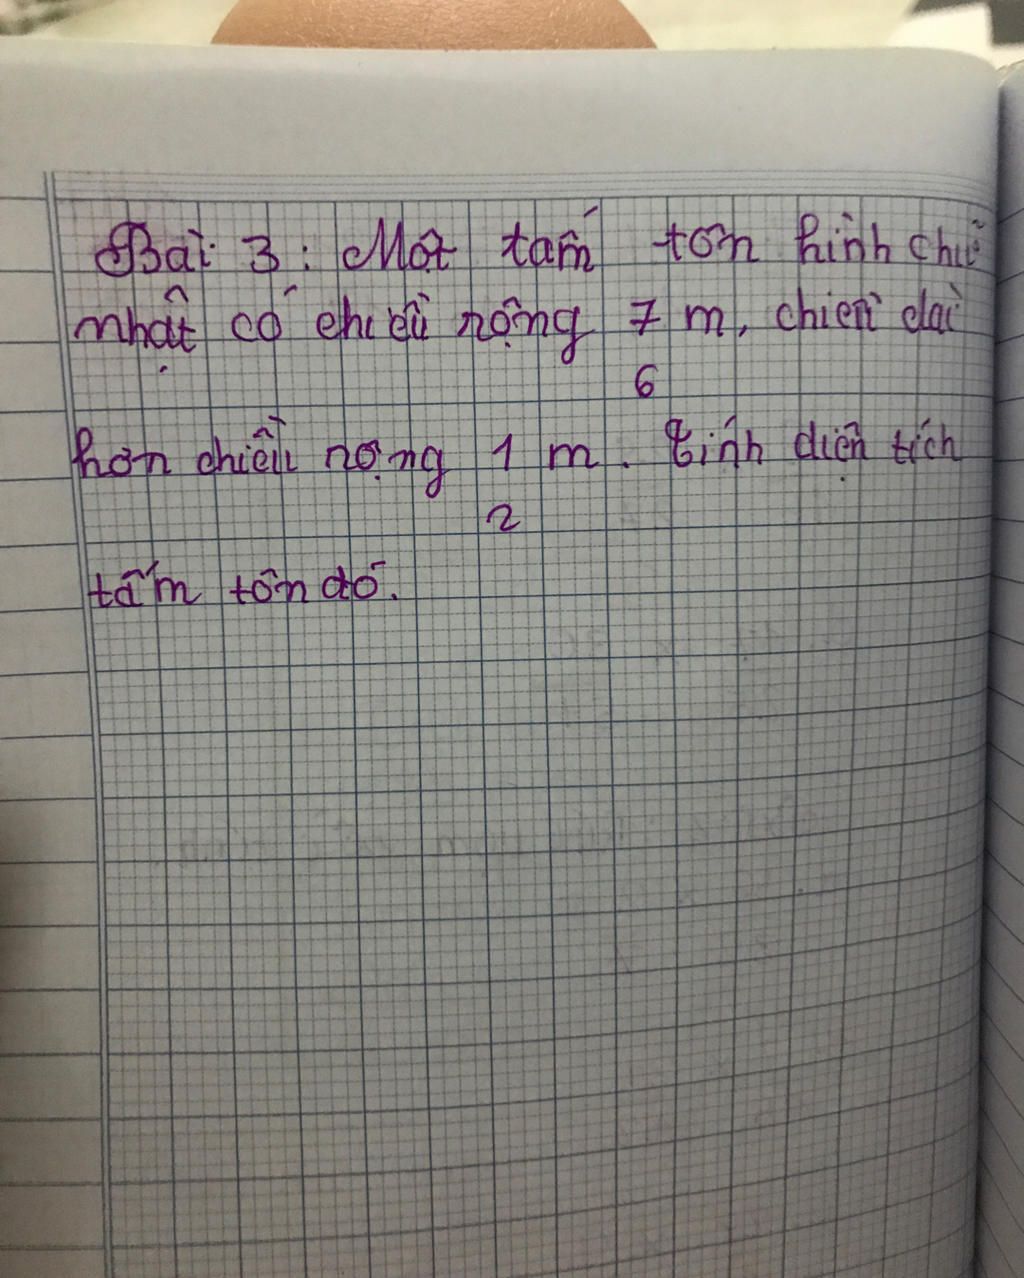 Bài 3: Một tấm tôn hình chữ
nhật có chiều rộng 7 m, chiều dài
6
hơn chiều rộng 1 m. Tính diện tích
2
tấm tôn đó.